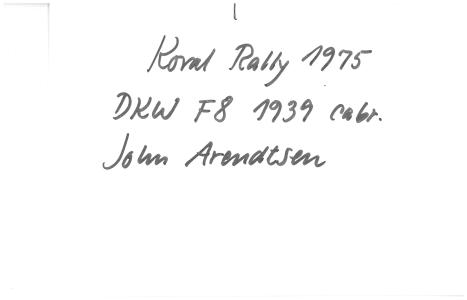 Koral Rally 1975
DKW F8 1939 cabr.
John Arendtsen